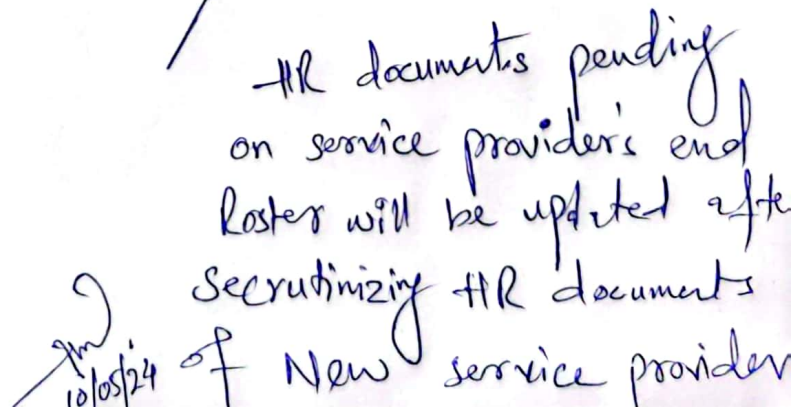 HR documents pending
on service provider's end
Roster will be updated afte
Secrutinizing HR documents
of New service provider
10/05/24